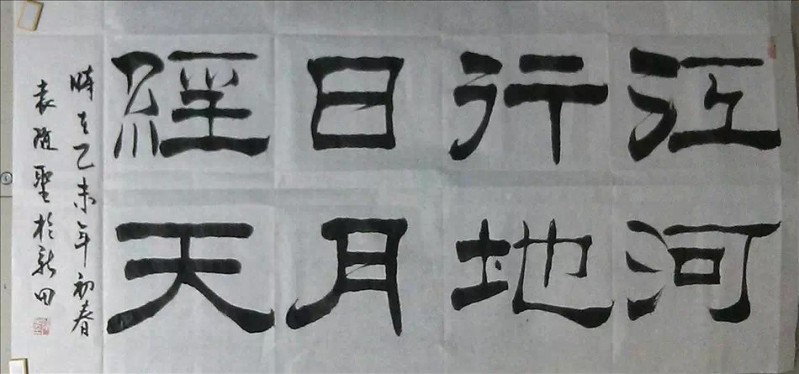 江河
行地
日月
經天
時在乙未年初春
袁随聖於新田